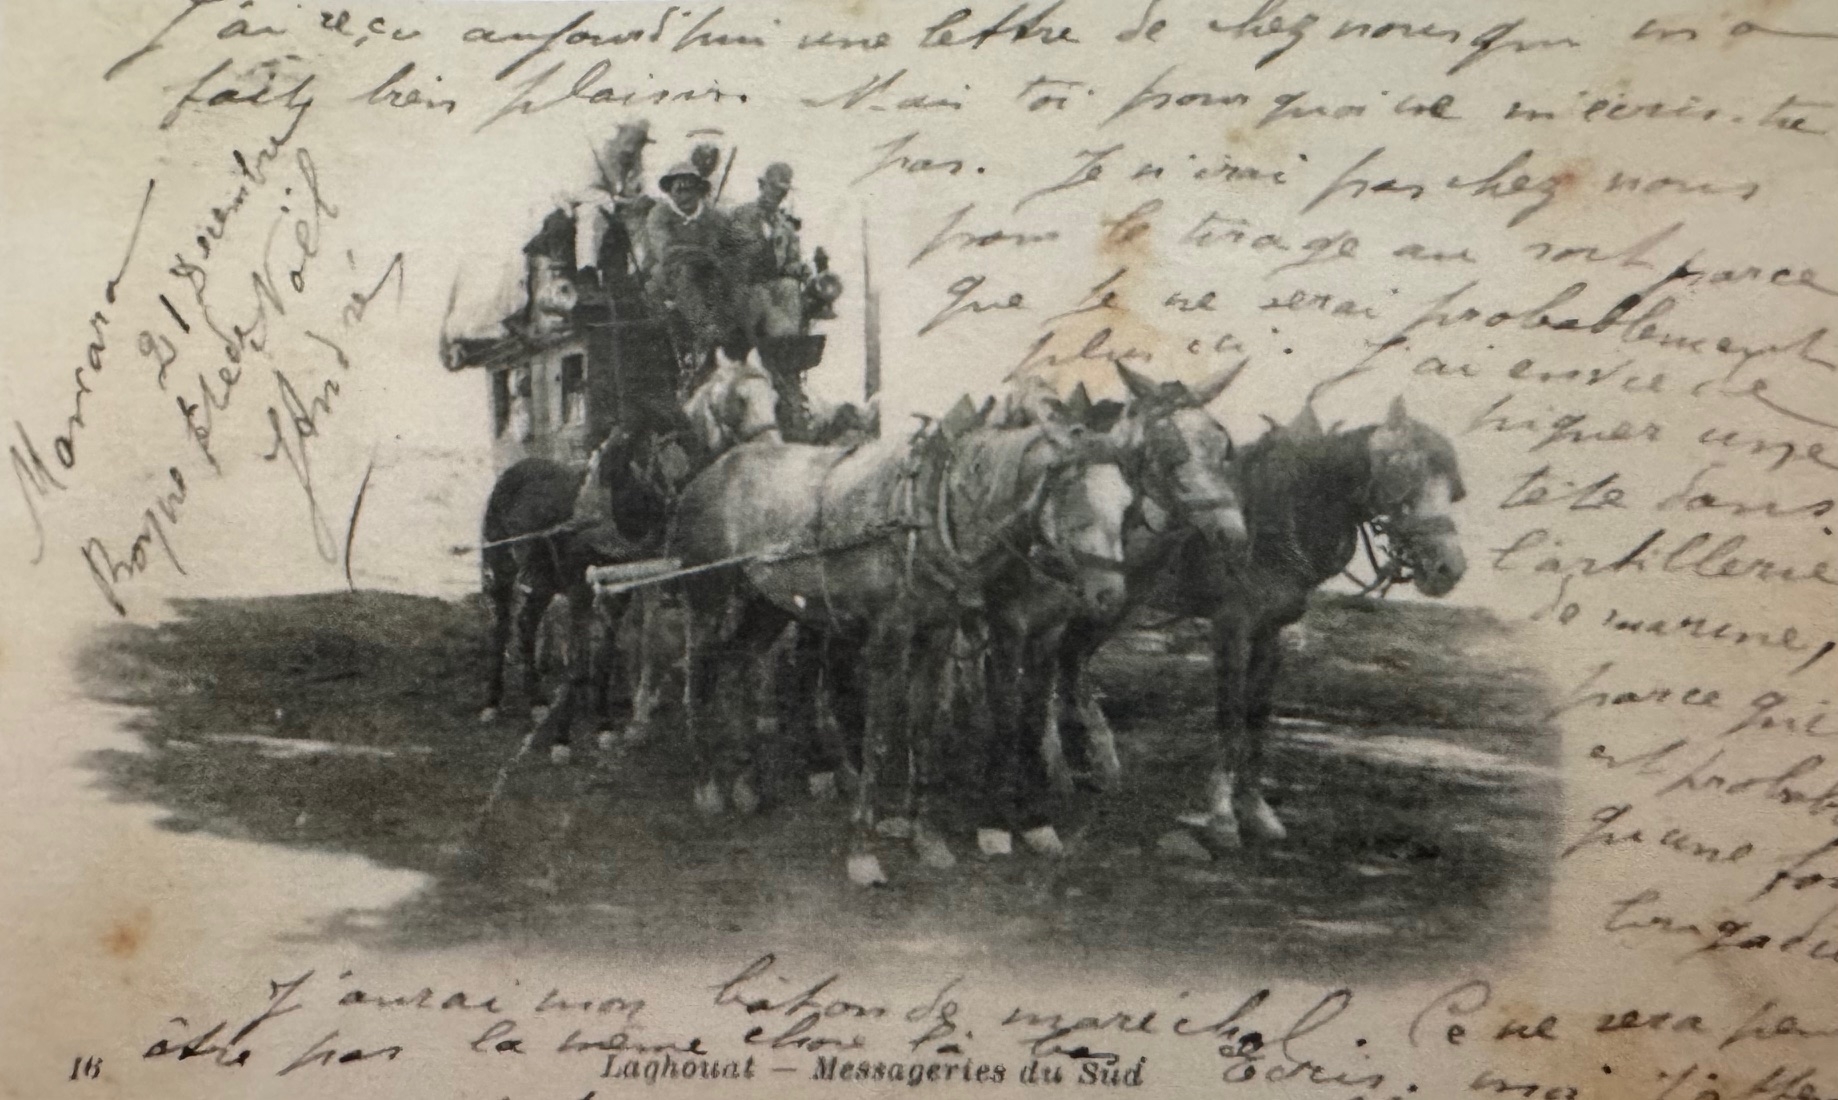 J'ai reçu aujourd'hui une lettre de chez nous qui m'a
faite bien plaisir. Mais toi pourquoi ne m'écris-tu
pas. Je n'irai pas chez nous
pour le tirage au sort parce
que je ne serai probablement
plus ici. J'ai envie de
piquer une
tête dans
l'artillerie
de marine,
parce que
est probab
qu'une fo
brigadi
J'aurai mon bâton de maréchal. Ce ne sera peu
être pas la même chose là bas Écris. moi
Mansara
21 Décembre
Bonne fête de Noël
André
16
Laghouat — Messageries du Sud